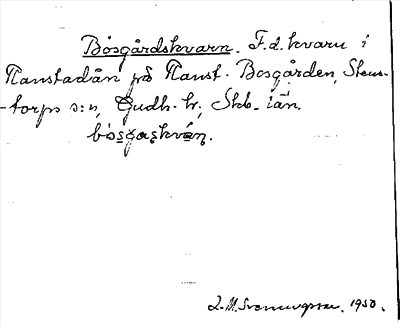 Bosgårdskvarn. F.d. kvarn i
Hanstadån på Hanst. Bosgården, Stens-
torps s:n, Gudh. hr, Skb. län.
L-M. Svenungsson. 1950.